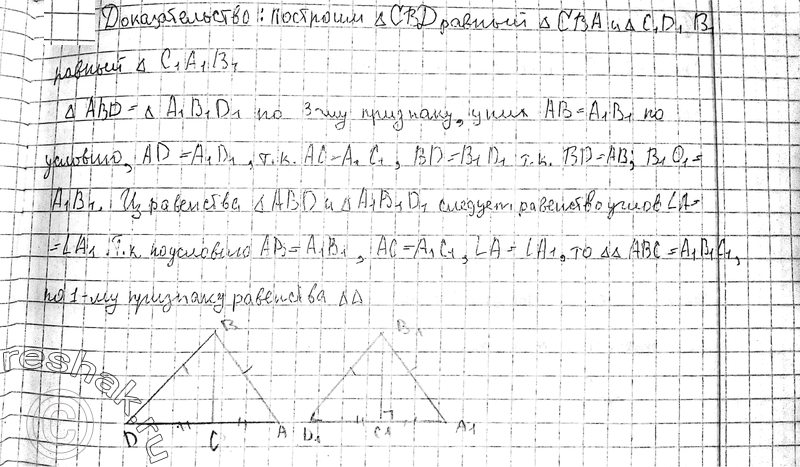 Доказательство: построим △CBD равный △CBA и △C₁D₁B₁
равный △ C₁A₁B₁
△ ABD = △ A₁B₁D₁ по 3-му признаку, у них AB = A₁B₁ по
условию, AD = A₁D₁, т.к. AC = A₁C₁, BD = B₁D₁ т.к. BD = AB; B₁D₁ =
A₁B₁. Из равенства △ABD и △A₁B₁D₁ следует равенство углов ∠A=
=∠A₁. Т.к. по условию AB = A₁B₁, AC = A₁C₁, ∠A = ∠A₁, то △△ ABC = A₁B₁C₁,
по 1-му признаку равенства △△
B B₁
D C A D₁ C₁ A₁
reshak.ru
©